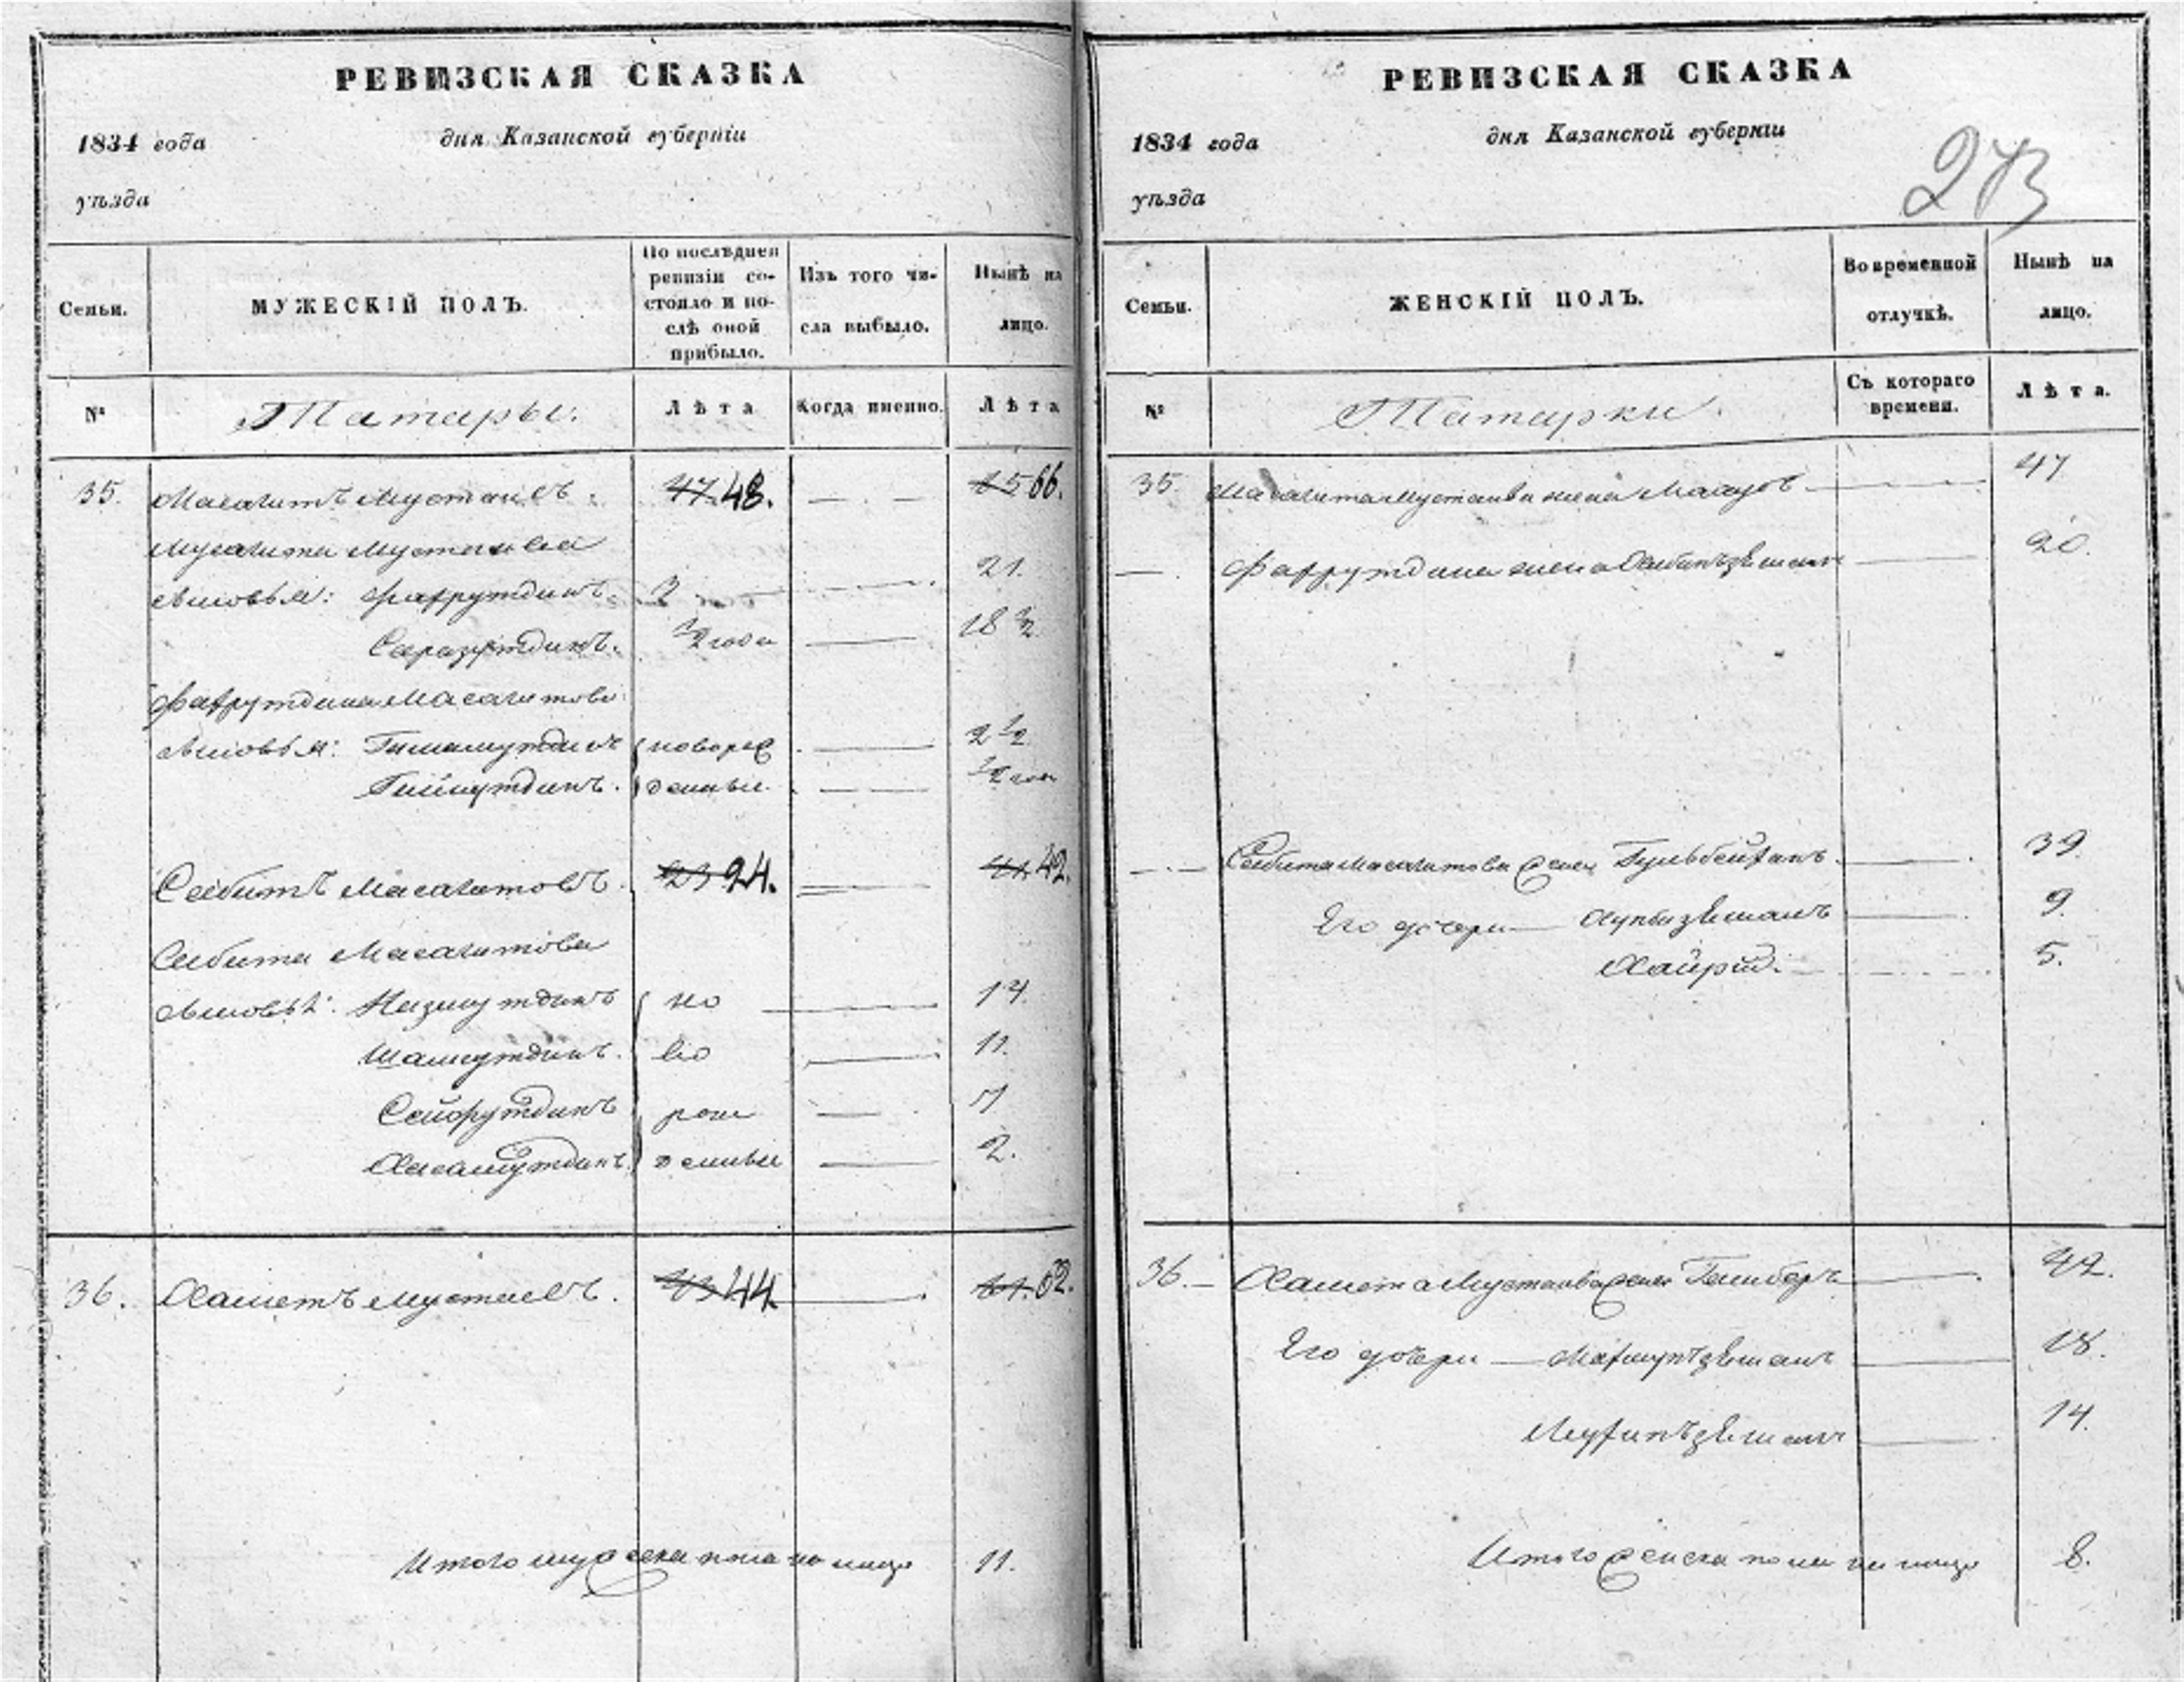 РЕВИЗСКАЯ СКАЗКА
1834 года дня Казанской губерніи
уѣзда
Семьи.
МУЖЕСКІЙ ПОЛЪ.
По послѣдней
ревизіи со-
стояло и по-
слѣ оной
прибыло.
Изъ того чи-
сла выбыло.
Нынѣ на
лицо.
№ Татары. Лѣта Когда именно. Лѣта
35. Масагитъ Мустаевъ. 47. 48. 65 66.
Мусагита Мустаева
сыновья: Фахрутдинъ. 3 21.
Саразутдинъ. 1/2 года 18 1/2
Фахрутдина Масагитова
сыновья: новорож 2 1/2
денные 1/2 года
Сабитъ Масагитовъ. 23 24. 41. 42.
Сабита Масагитова
сыновья: Низмутдинъ но 14.
Шамсутдинъ. во 11.
Сейфутдинъ рож 7
денные 2.
36. Хаметъ Мустаевъ. 43 44 61. 62.
Итого мужеска пола на лицо 11.
РЕВИЗСКАЯ СКАЗКА
1834 года дня Казанской губерніи
уѣзда
273
Семьи.
ЖЕНСКІЙ ПОЛЪ.
Во временной
отлучкѣ.
Нынѣ на
лицо.
№ Татарки. Съ котораго
времени. Лѣта.
35. Масагита Мустаева жена 47
Фахрутдина жена 20.
Сабита Масагитова жена 39.
Его дочери 9.
5.
36. Хамета Мустаева жена 42.
Его дочери 18.
14.
Итого женска пола на лицо 8.